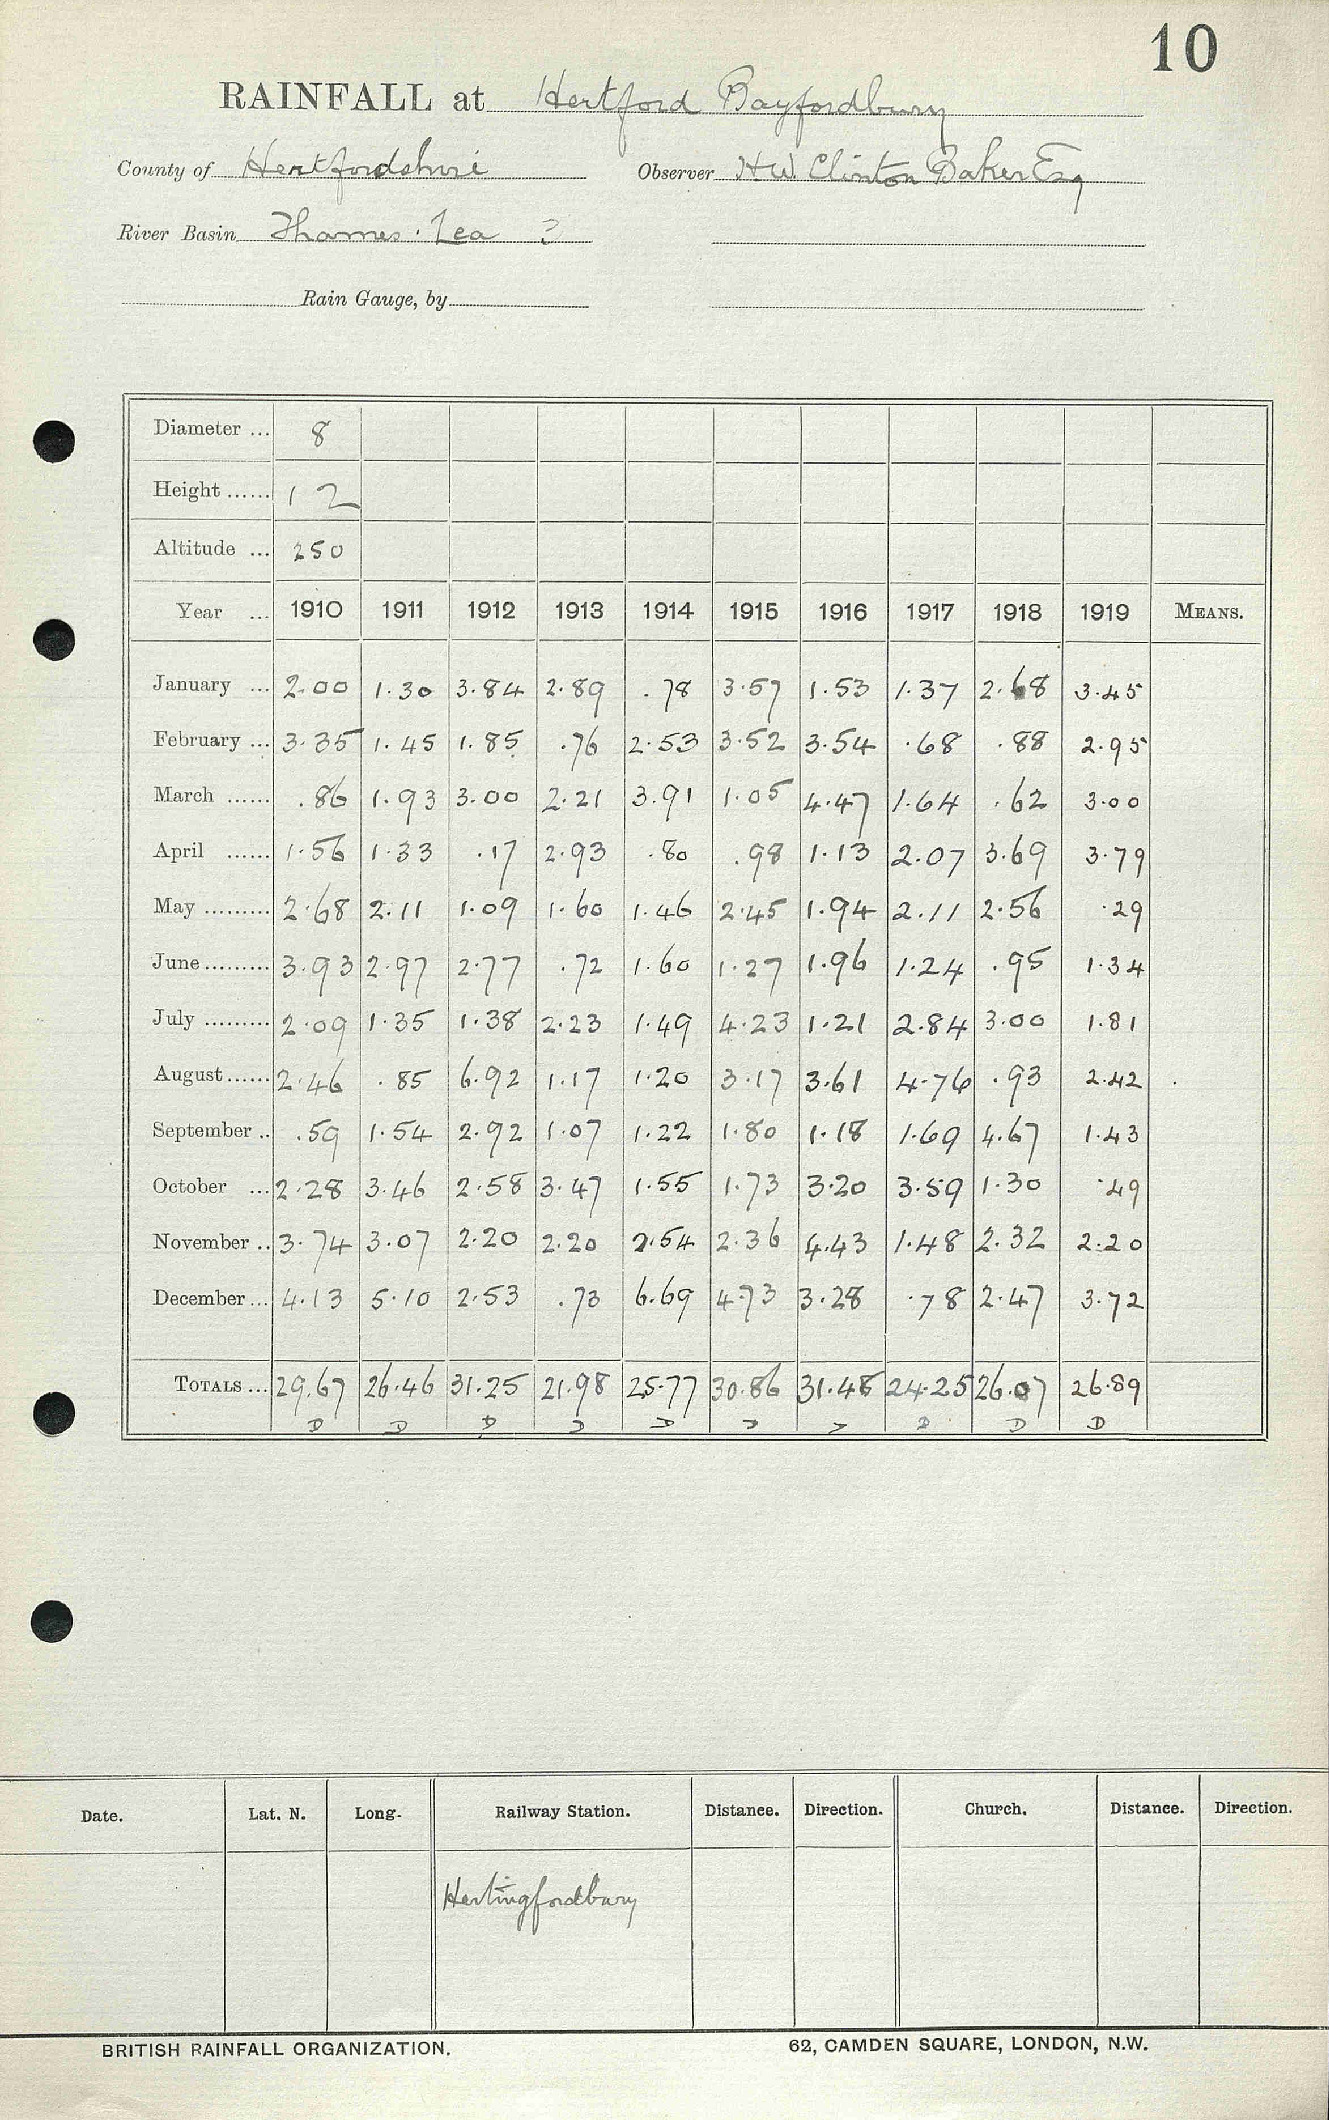 10
RAINFALL at Hertford Bayfordbury
County of Hertfordshire Observer H W Clinton Baker Esq
River Basin Thames. Lea ?
Rain Gauge, by
Diameter ... 8
Height ...... 12
Altitude ... 250
Year ... 1910 1911 1912 1913 1914 1915 1916 1917 1918 1919 MEANS.
January ... 2.00 1.30 3.84 2.89 .78 3.57 1.53 1.37 2.68 3.45
February ... 3.35 1.45 1.85 .76 2.53 3.52 3.54 .68 .88 2.95
March ...... .86 1.93 3.00 2.21 3.91 1.05 4.47 1.64 .62 3.00
April ...... 1.56 1.33 .17 2.93 .80 .98 1.13 2.07 3.69 3.79
May ......... 2.68 2.11 1.09 1.60 1.46 2.45 1.94 2.11 2.56 .29
June ......... 3.93 2.97 2.77 .72 1.60 1.27 1.96 1.24 .95 1.34
July ......... 2.09 1.35 1.38 2.23 1.49 4.23 1.21 2.84 3.00 1.81
August ...... 2.46 .85 6.92 1.17 1.20 3.17 3.61 4.76 .93 2.42
September .. .59 1.54 2.92 1.07 1.22 1.80 1.18 1.69 4.67 1.43
October ... 2.28 3.46 2.58 3.47 1.55 1.73 3.20 3.59 1.30 .49
November .. 3.74 3.07 2.20 2.20 2.54 2.36 4.43 1.48 2.32 2.20
December ... 4.13 5.10 2.53 .73 6.69 4.73 3.28 .78 2.47 3.72
TOTALS ... 29.67 26.46 31.25 21.98 25.77 30.86 31.48 24.25 26.07 26.89
D D D D D D D D D D
Date. Lat. N. Long. Railway Station. Distance. Direction. Church. Distance. Direction.
Hertingfordbury
BRITISH RAINFALL ORGANIZATION. 62, CAMDEN SQUARE, LONDON, N.W.